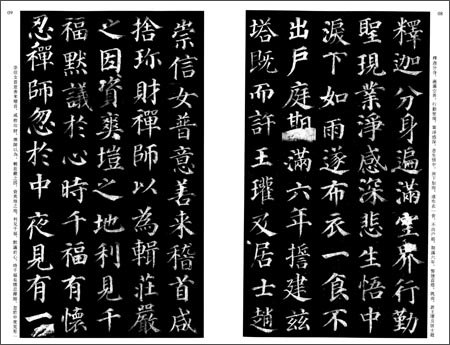 08
釋迦分身遍滿空界行勤
聖現業淨感深悲生悟中
淚下如雨遂布衣一食不
出戶庭期滿六年誓建茲
塔既而許王瓘及居士趙
09
崇信女普意善来稽首咸
捨珎財禪師以為輯莊嚴
之因資爽塏之地利見千
福默議於心時千福有懷
忍禪師忽於中夜見有一